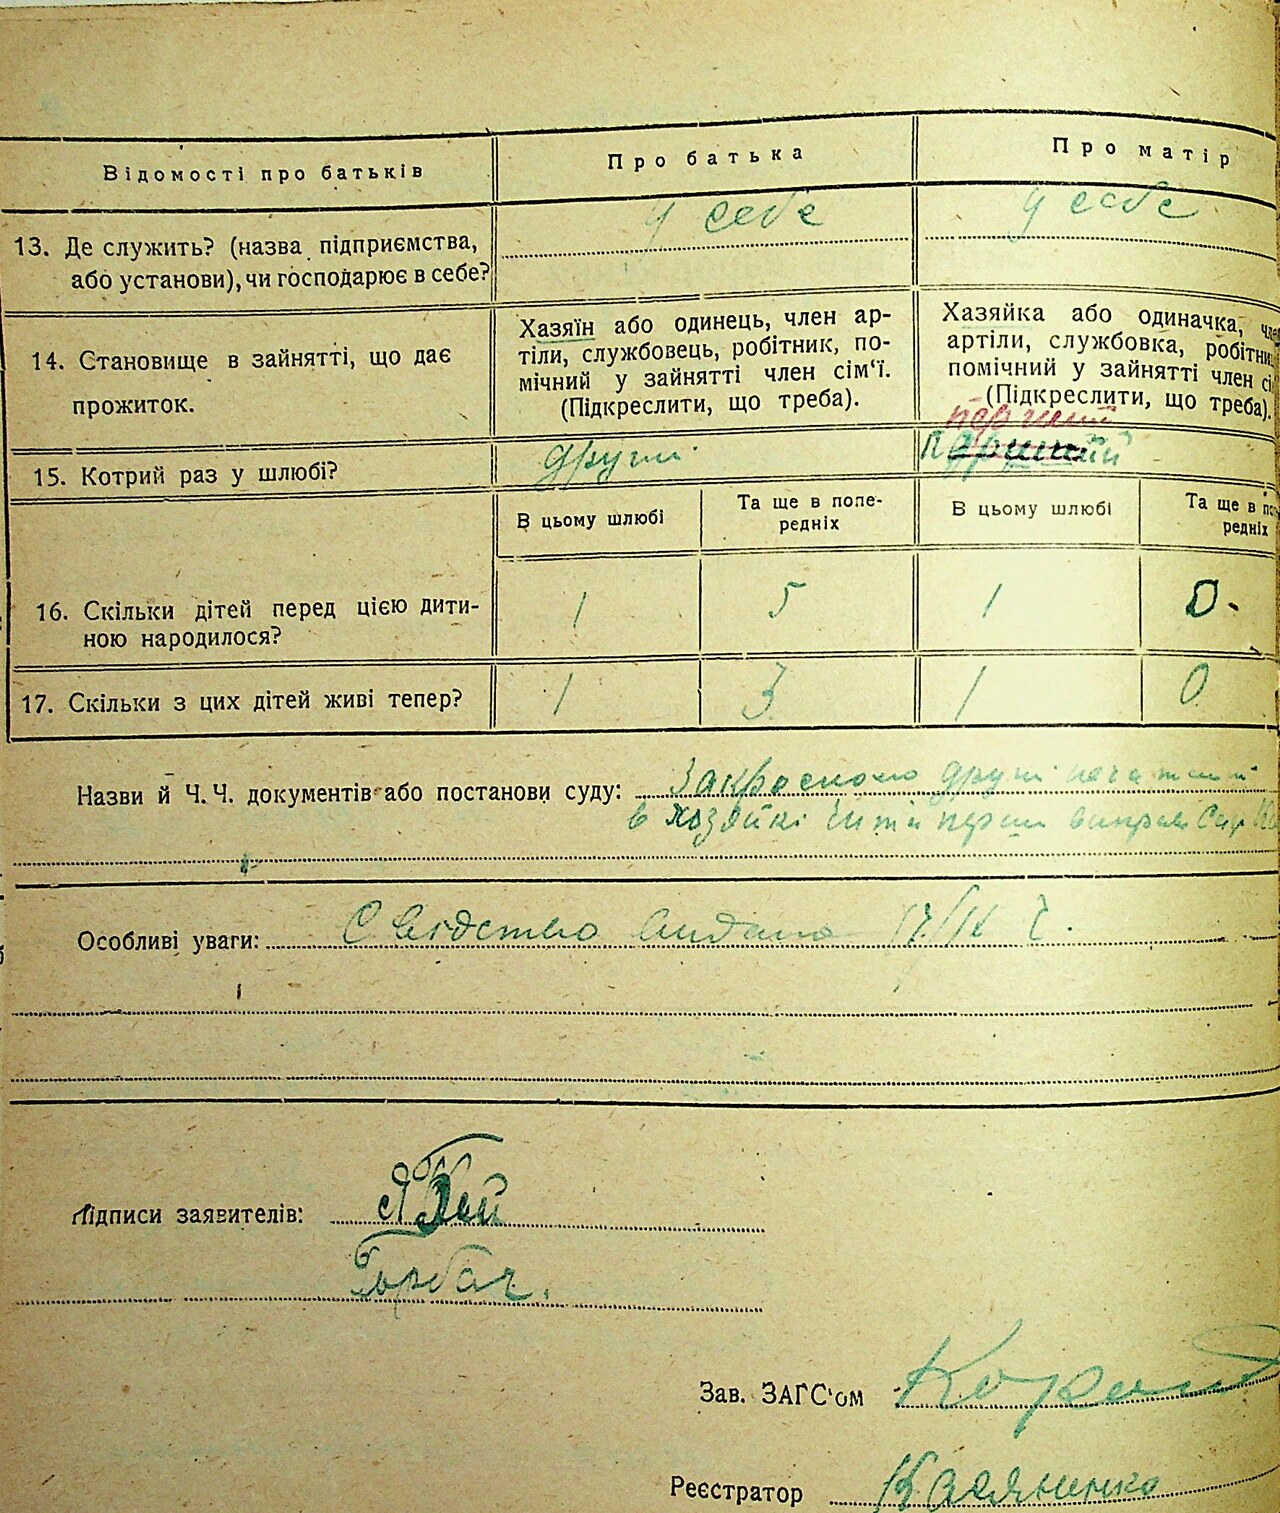 Відомості про батьків
Про батька
Про матір
13. Де служить? (назва підприємства,
або установи), чи господарює в себе?
у себе
у себе
14. Становище в зайнятті, що дає
прожиток.
Хазяїн або одинець, член ар-
тіли, службовець, робітник, по-
мічний у зайнятті член сім'ї.
(Підкреслити, що треба).
Хазяйка або одиначка, чле
артіли, службовка, робітни
помічний у зайнятті член сі
(Підкреслити, що треба).
15. Котрий раз у шлюбі?
другий
перший
В цьому шлюбі
Та ще в попе-
редніх
В цьому шлюбі
Та ще в по
редніх
16. Скільки дітей перед цією дити-
ною народилося?
1
5
1
0.
17. Скільки з цих дітей живі тепер?
1
3
1
0
Назви й Ч.Ч. документів або постанови суду:
в хозяйкі
Особливі уваги: Свідство видано 17/IX
Підписи заявителів:
Горбач.
Зав. ЗАГС'ом
Реєстратор